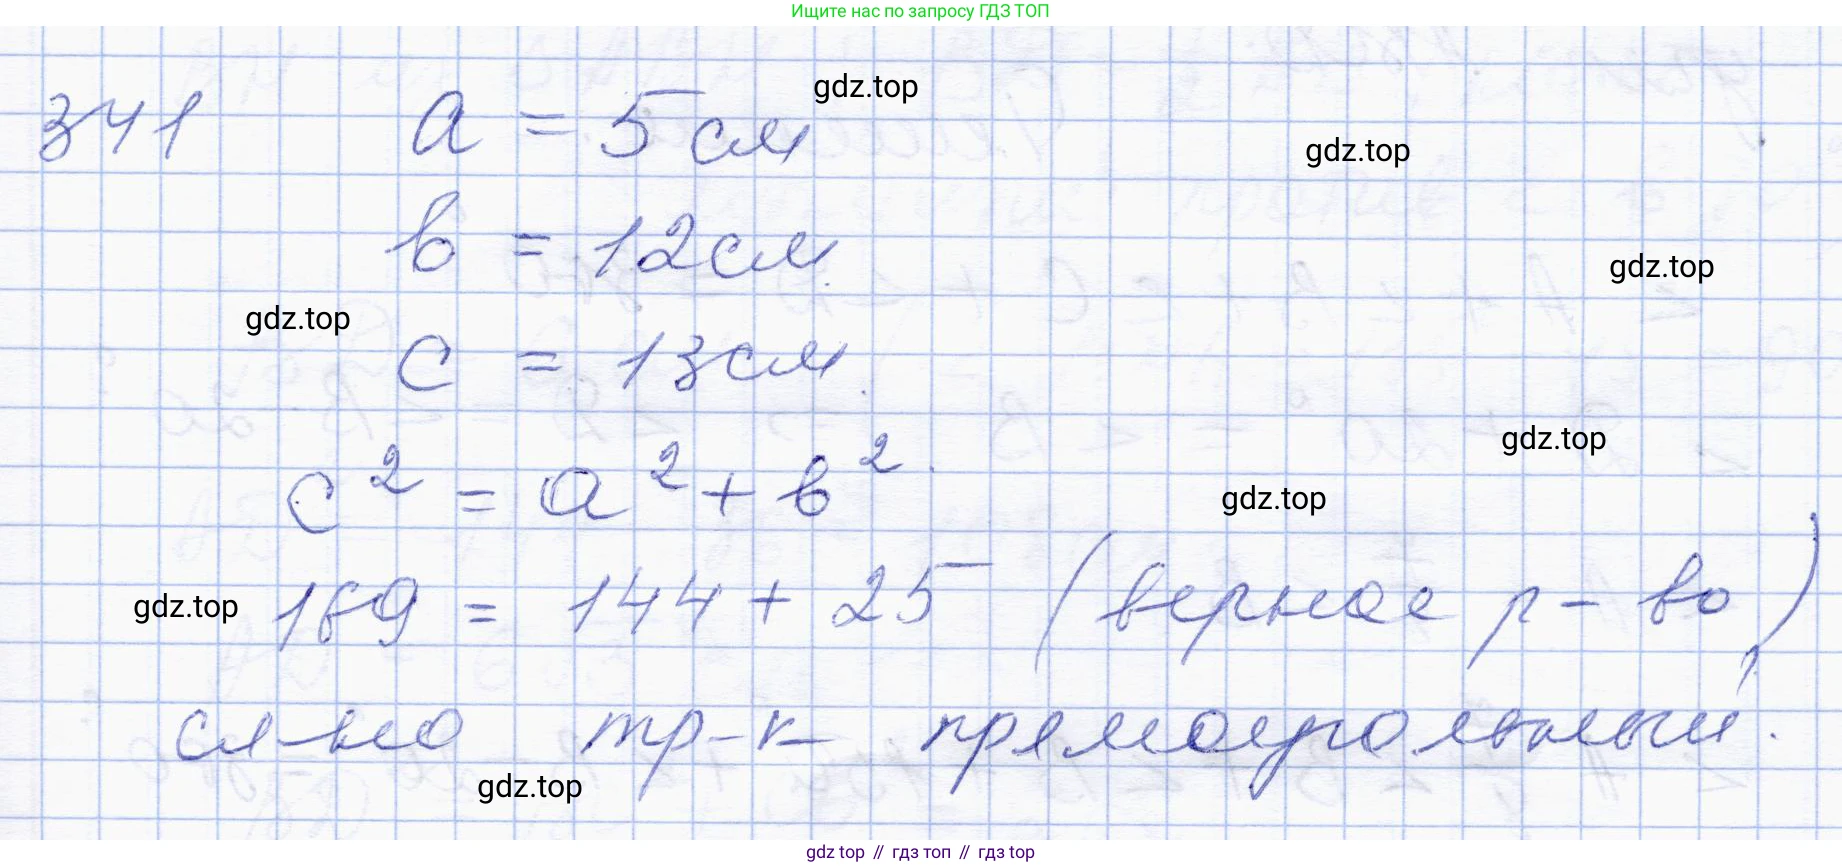 Ищите нас по запросу ГДЗ ТОП
341 a = 5 см
gdz.top
gdz.top
b = 12 см
gdz.top
gdz.top
c = 13 см
gdz.top
c² = a² + b²
gdz.top
gdz.top
169 = 144 + 25 (верное р-во),
сл-но тр-к прямоугольный.
gdz.top
gdz top // гдз топ // гдз top